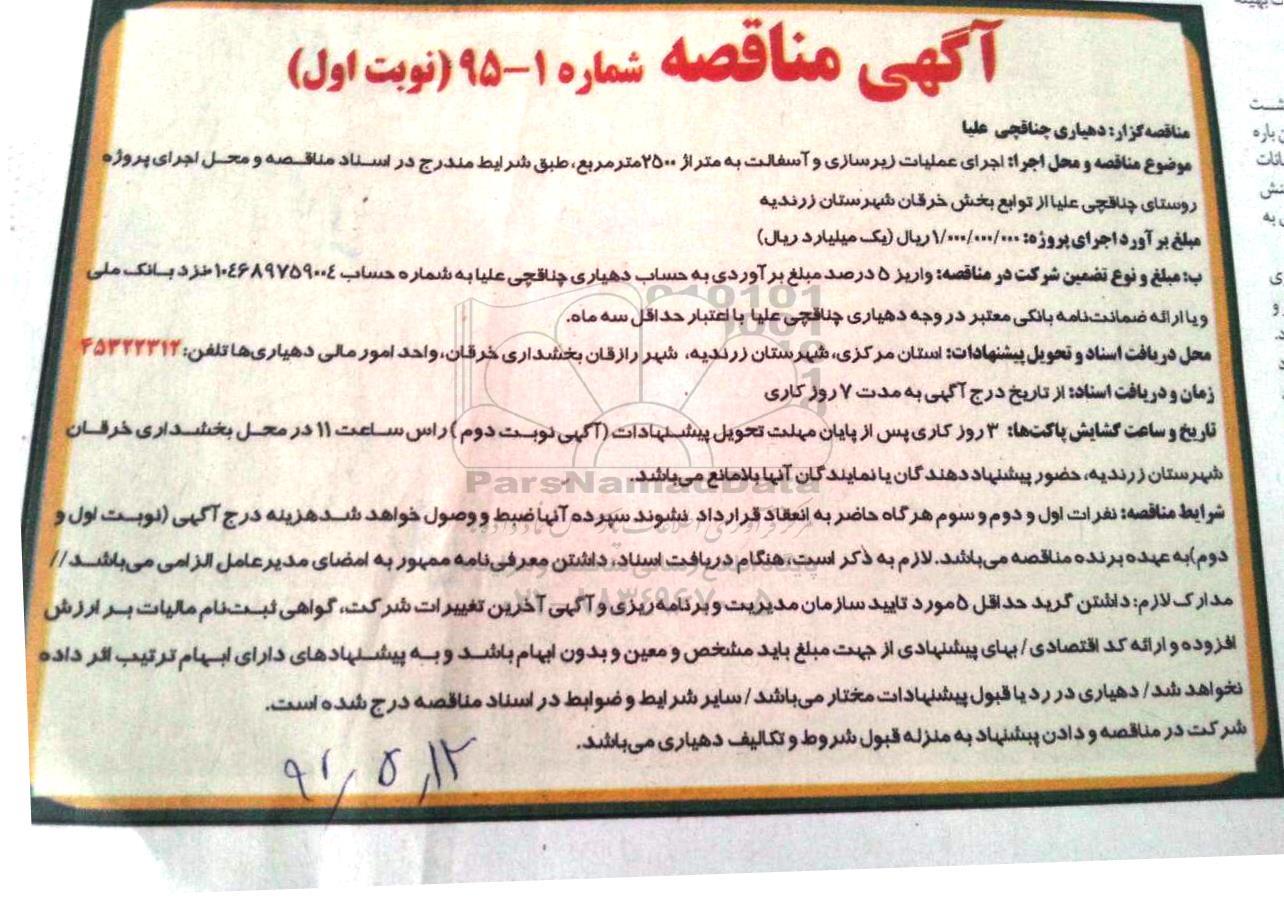 آگهی مناقصه شماره ۱-۹۵ (نوبت اول)
مناقصه‌گزار: دهیاری چناقچی علیا
موضوع مناقصه و محل اجرا: اجرای عملیات زیرسازی و آسفالت به متراژ ۲۵۰۰مترمربع، طبق شرایط مندرج در اسناد مناقصه و محل اجرای پروژه
روستای چناقچی علیا از توابع بخش خرقان شهرستان زرندیه
مبلغ برآورد اجرای پروژه: ۱/۰۰۰/۰۰۰/۰۰۰ ریال (یک میلیارد ریال)
ب: مبلغ و نوع تضمین شرکت در مناقصه: واریز ۵ درصد مبلغ برآوردی به حساب دهیاری چناقچی علیا به شماره حساب ۱۰۴۶۸۹۷۵۹۰۰۴ نزد بانک ملی
و یا ارائه ضمانت‌نامه بانکی معتبر در وجه دهیاری چناقچی علیا با اعتبار حداقل سه ماه.
محل دریافت اسناد و تحویل پیشنهادات: استان مرکزی، شهرستان زرندیه، شهر رازقان بخشداری خرقان، واحد امور مالی دهیاری‌ها تلفن: ۴۵۳۲۲۳۱۲
زمان و دریافت اسناد: از تاریخ درج آگهی به مدت ۷ روز کاری
تاریخ و ساعت گشایش پاکت‌ها: ۳ روز کاری پس از پایان مهلت تحویل پیشنهادات (آگهی نوبت دوم) راس ساعت ۱۱ در محل بخشداری خرقان
شهرستان زرندیه، حضور پیشنهاد دهندگان یا نمایندگان آنها بلامانع می‌باشد.
شرایط مناقصه: نفرات اول و دوم و سوم هرگاه حاضر به انعقاد قرارداد نشوند سپرده آنها ضبط و وصول خواهد شد هزینه درج آگهی (نوبت اول و
دوم) به عهده برنده مناقصه می‌باشد. لازم به ذکر است، هنگام دریافت اسناد، داشتن معرفی‌نامه ممهور به امضای مدیرعامل الزامی می‌باشد //
مدارک لازم: داشتن گرید حداقل ۵ مورد تایید سازمان مدیریت و برنامه‌ریزی و آگهی آخرین تغییرات شرکت، گواهی ثبت‌نام مالیات بر ارزش
افزوده و ارائه کد اقتصادی / بهای پیشنهادی از جهت مبلغ باید مشخص و معین و بدون ابهام باشد و به پیشنهادهای دارای ابهام ترتیب اثر داده
نخواهد شد / دهیاری در رد یا قبول پیشنهادات مختار می‌باشد / سایر شرایط و ضوابط در اسناد مناقصه درج شده است.
شرکت در مناقصه و دادن پیشنهاد به منزله قبول شروط و تکالیف دهیاری می‌باشد.
ParsNamadData